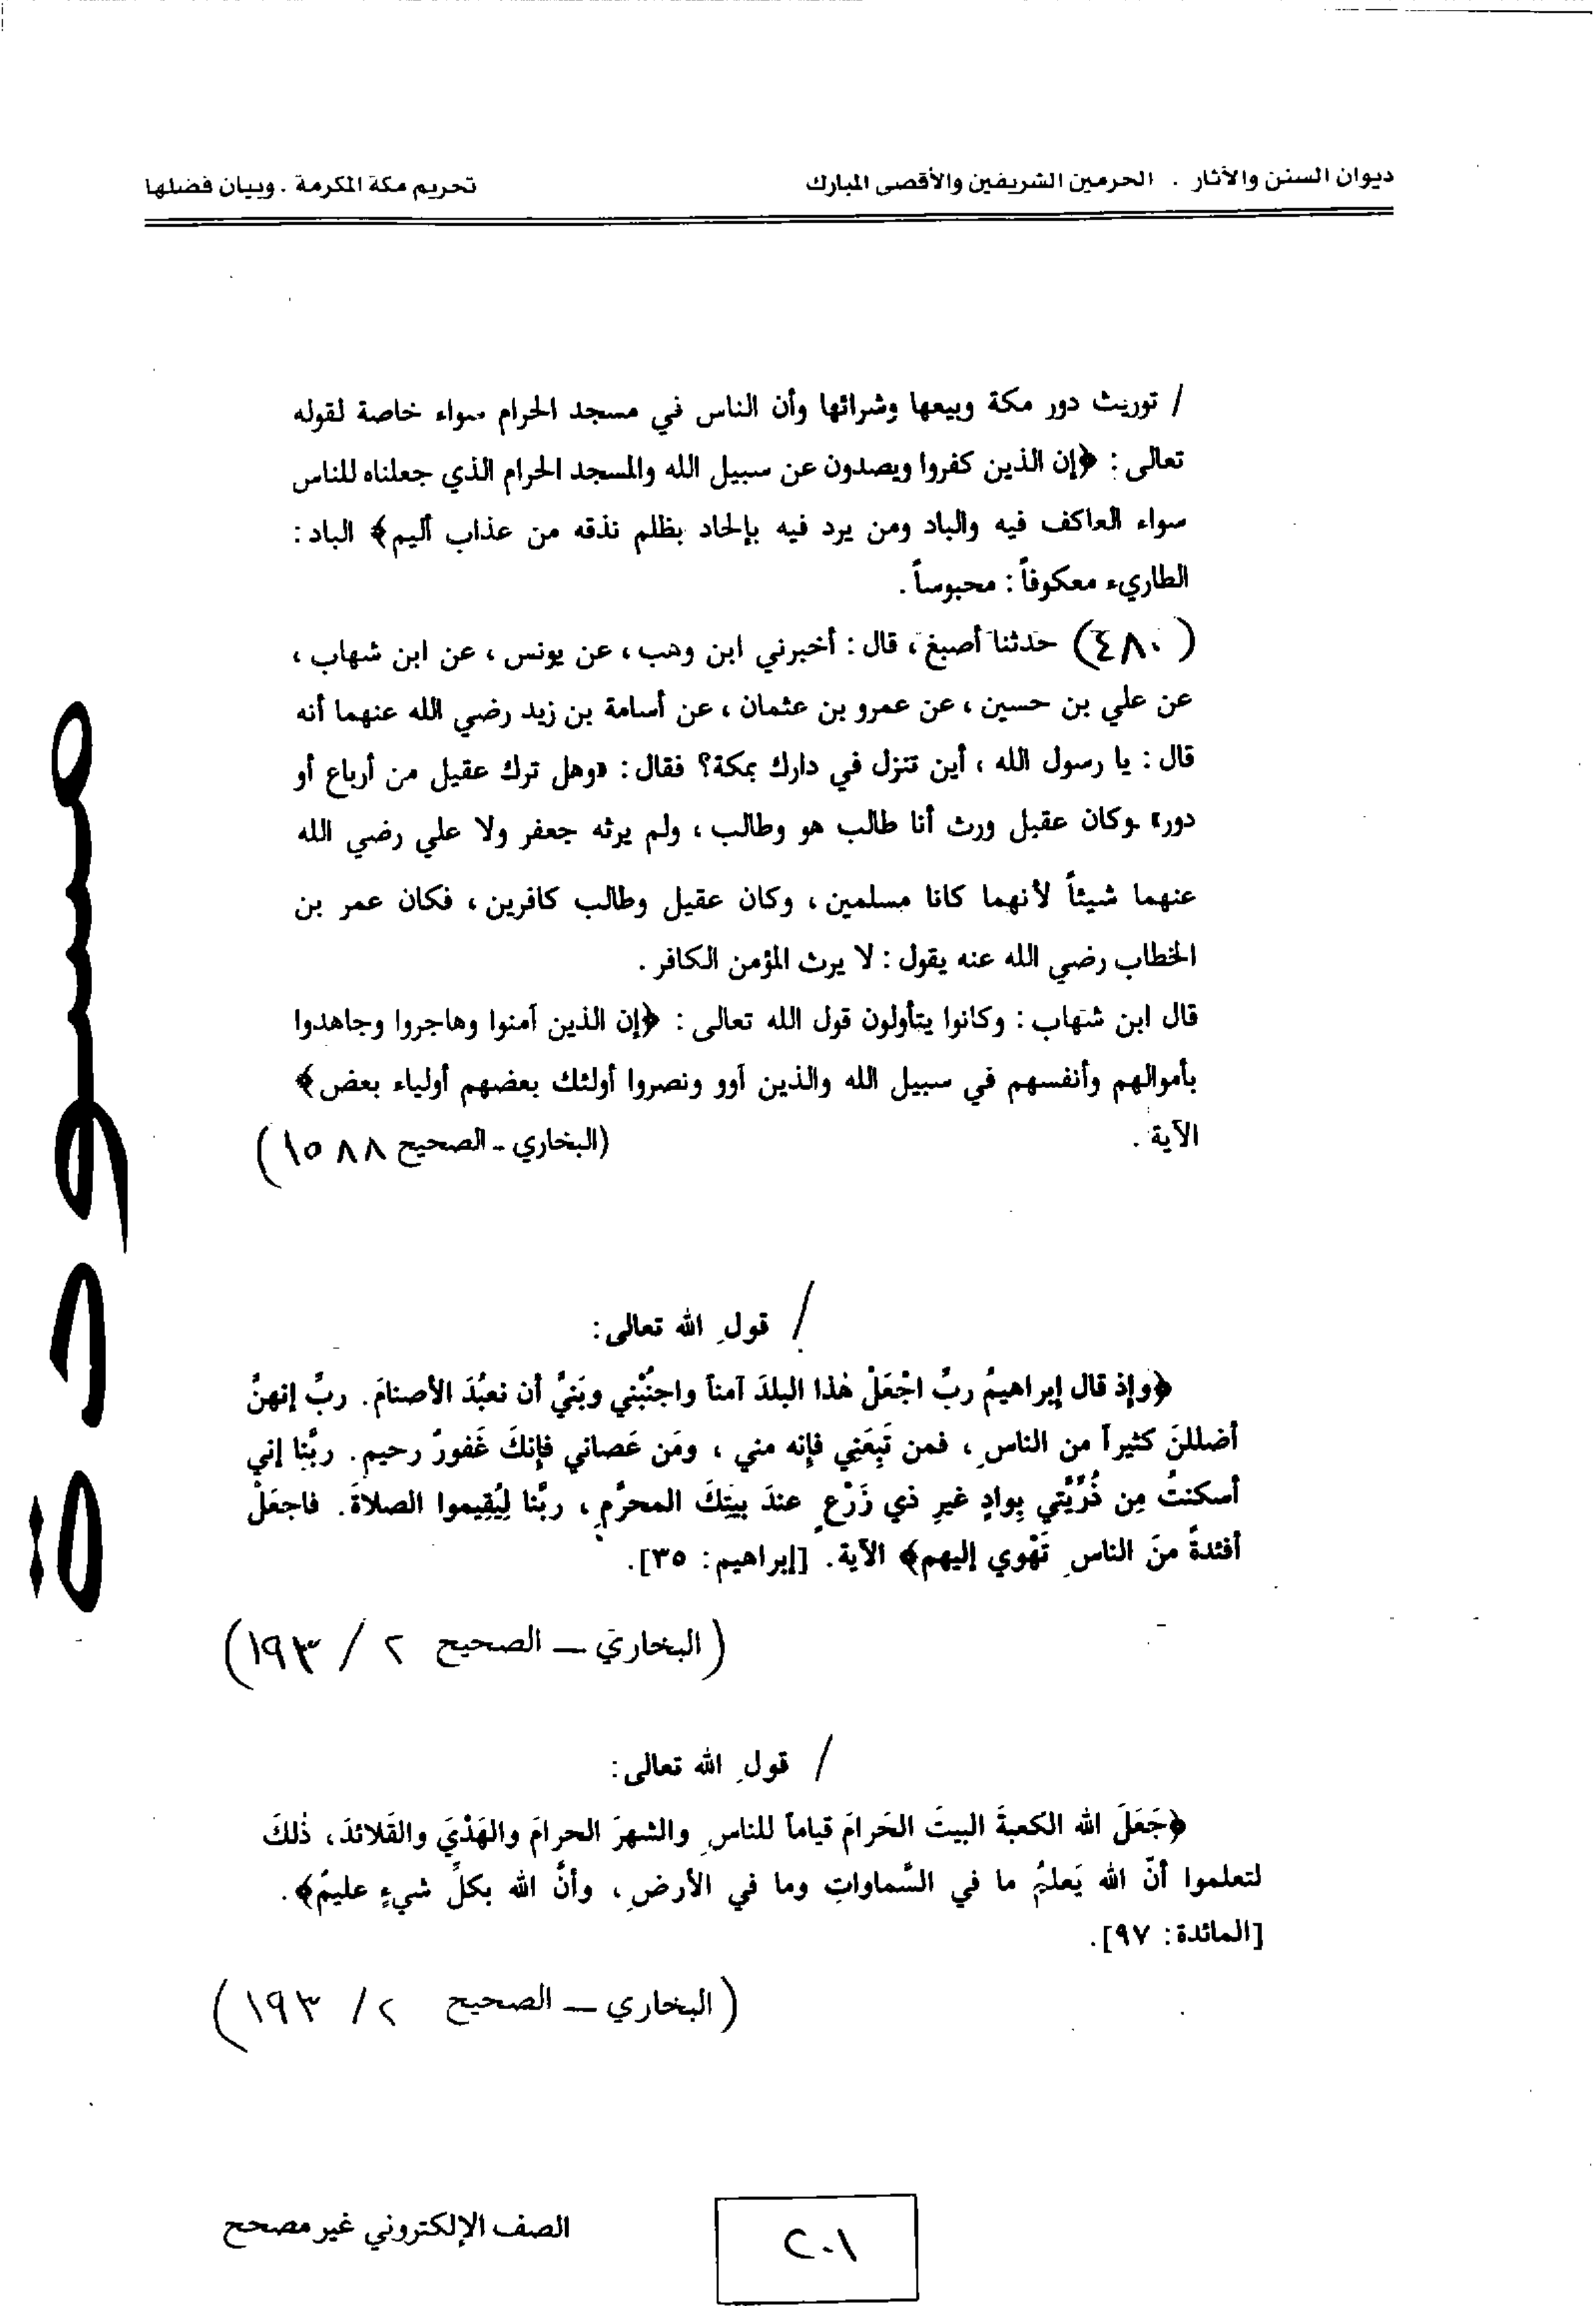 ديوان السنن والآثار . الحرمين الشريفين والأقصى المبارك
تحريم مكة المكرمة . وبيان فضلها
/ توريث دور مكة وبيعها وشرائها وأن الناس في مسجد الحرام سواء خاصة لقوله
تعالى : ﴿إن الذين كفروا ويصدون عن سبيل الله والمسجد الحرام الذي جعلناه للناس
سواء العاكف فيه والباد ومن يرد فيه بإلحاد بظلم نذقه من عذاب أليم﴾ الباد :
الطاريء معكوفاً : محبوساً .
(٤٨٠) حدثنا أصبغ ، قال : أخبرني ابن وهب ، عن يونس ، عن ابن شهاب ،
عن علي بن حسين ، عن عمرو بن عثمان ، عن أسامة بن زيد رضي الله عنهما أنه
قال : يا رسول الله ، أين تنزل في دارك بمكة؟ فقال : «وهل ترك عقيل من أرباع أو
دور» وكان عقيل ورث أنا طالب هو وطالب ، ولم يرثه جعفر ولا علي رضي الله
عنهما شيئاً لأنهما كانا مسلمين ، وكان عقيل وطالب كافرين ، فكان عمر بن
الخطاب رضي الله عنه يقول : لا يرث المؤمن الكافر .
قال ابن شهاب : وكانوا يتأولون قول الله تعالى : ﴿إن الذين آمنوا وهاجروا وجاهدوا
بأموالهم وأنفسهم في سبيل الله والذين آوو ونصروا أولئك بعضهم أولياء بعض﴾
الآية . (البخاري - الصحيح ١٥٨٨)
/ قولِ الله تعالى:
﴿وإذ قال إبراهيمُ ربِّ اجْعَلْ هٰذا البلدَ آمناً واجنُبْني وبَنيَّ أن نعبُدَ الأصنامَ. ربِّ إنهنَّ
أضللنَ كثيراً من الناسِ ، فمن تَبِعَنِي فإنه مني ، ومَن عَصاني فإنكَ غَفورٌ رحيم. ربَّنا إني
أسكنتُ مِن ذُرِّيَّتي بِوادٍ غيرِ ذي زَرْعٍ عندَ بيتِكَ المحرَّمِ ، ربَّنا لِيُقِيموا الصلاةَ. فاجعَلْ
أفئدةً منَ الناسِ تَهْوي إليهم﴾ الآية. [إبراهيم: ٣٥].
(البخاري — الصحيح ٢ / ١٩٣)
/ قولِ الله تعالى:
﴿جَعَلَ الله الكعبةَ البيتَ الحَرامَ قياماً للناسِ والشهرَ الحرامَ والهَدْيَ والقَلائدَ، ذٰلكَ
لتعلموا أنّ الله يَعلمُ ما في السَّماواتِ وما في الأرضِ ، وأنَّ الله بكلِّ شيءٍ عليمٌ﴾ .
[المائدة: ٩٧].
(البخاري — الصحيح ٢ / ١٩٣)
مسودة
٢٠١
الصف الإلكتروني غير مصحح